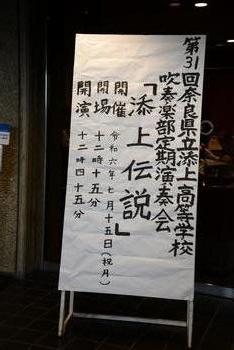 第31回奈良県立添上高等学校
吹奏楽部定期演奏会
「添上伝説」
開催 令和六年七月十五日(祝月)
開場 十二時十五分
開演 十二時四十五分